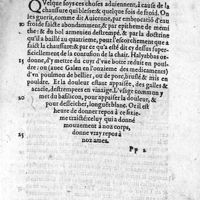 Quelque foys ces choses aduiennent, à cause de la
chaussure qui blesse: & quelque fois de froid. On
les guerit, comme dit Auicenne, par embrocation d'eau
froide salee abondamment, & par epitheme de mesme
che: & du bol armenien destrempé, & par la doctrine
qu'il a baillé au quatriesme, pour l'escorchement que a
faict la chaussure: & par ce qu'a esté dit cy dessus super-
ficiellement de la contusion de la chair. Halyabbas or-
25 donne, d'y mettre du cuyr d'vne botte reduit en poul-
dre: ou (auec Galen en l'onziesme des medicaments)
d'vn poulmon de bellier, ou de porc, bruslé & mis en
pouldre. Et la douleur estant appaisee, des galles &
acacie, destrempees en vinaigre. L'vsage commun y
met du basilicon, pour appaiser la douleur, &
pour desseicher, longuest blanc. Or il est
heure de donner repos à ce sixies-
me traicté: celuy qui a donné
mouuement à noz corps,
25 donne vray repos à
noz ames.
Pp 2